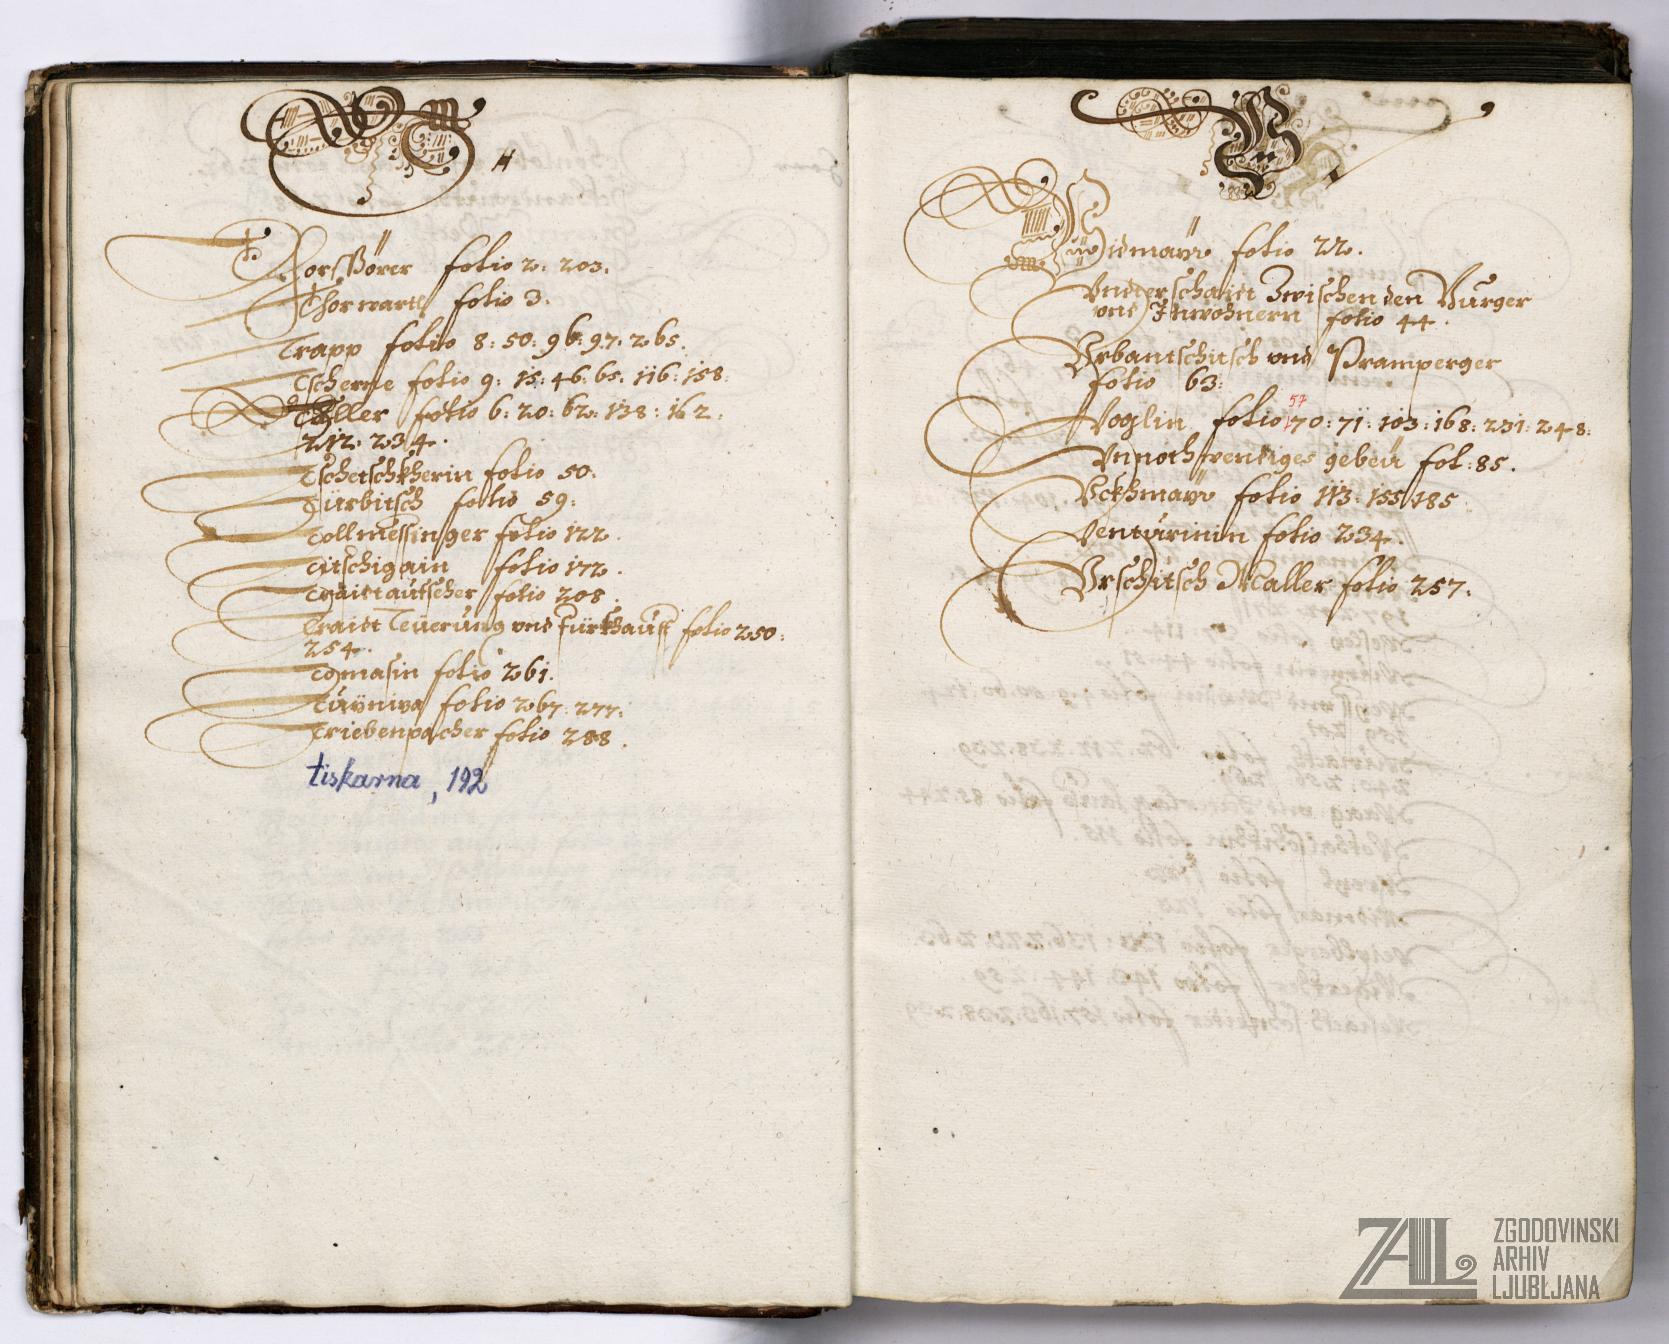 T
Torsßörer folio 2: 203.
Thorwartl folio 3.
Trapp folio 8: 50: 96: 97: 265.
Tscherne folio 9: 15: 46: 65: 116: 158.
Täller folio 6: 20: 62: 138: 162:
212: 234.
Tschetschkherin folio 50.
Türbitsch folio 59:
Tollmessinger folio 122.
Titschigain folio 172.
folio 208.
Traidt Teüerüng vnd fürkhaüff folio 250:
254.
Tomasin folio 261.
folio 267: 277.
Triebenpacher folio 288.
tiskarna, 192
V
Vidmaÿr folio 22.
Vnderschaidt Zwischen den Burger
vnd Inwohnern folio 44.
Vrbantschitsch vnd Pramperger
folio 63:
57
Voglin folio 70: 71: 103: 168: 231: 248:
Vnnothwendiges gebeü fol: 85.
Vckhmaÿr folio 113: 155: 185
Ventürinin folio 234.
Vrschitsch Maller folio 257.
ZAL
ZGODOVINSKI
ARHIV
LJUBLJANA